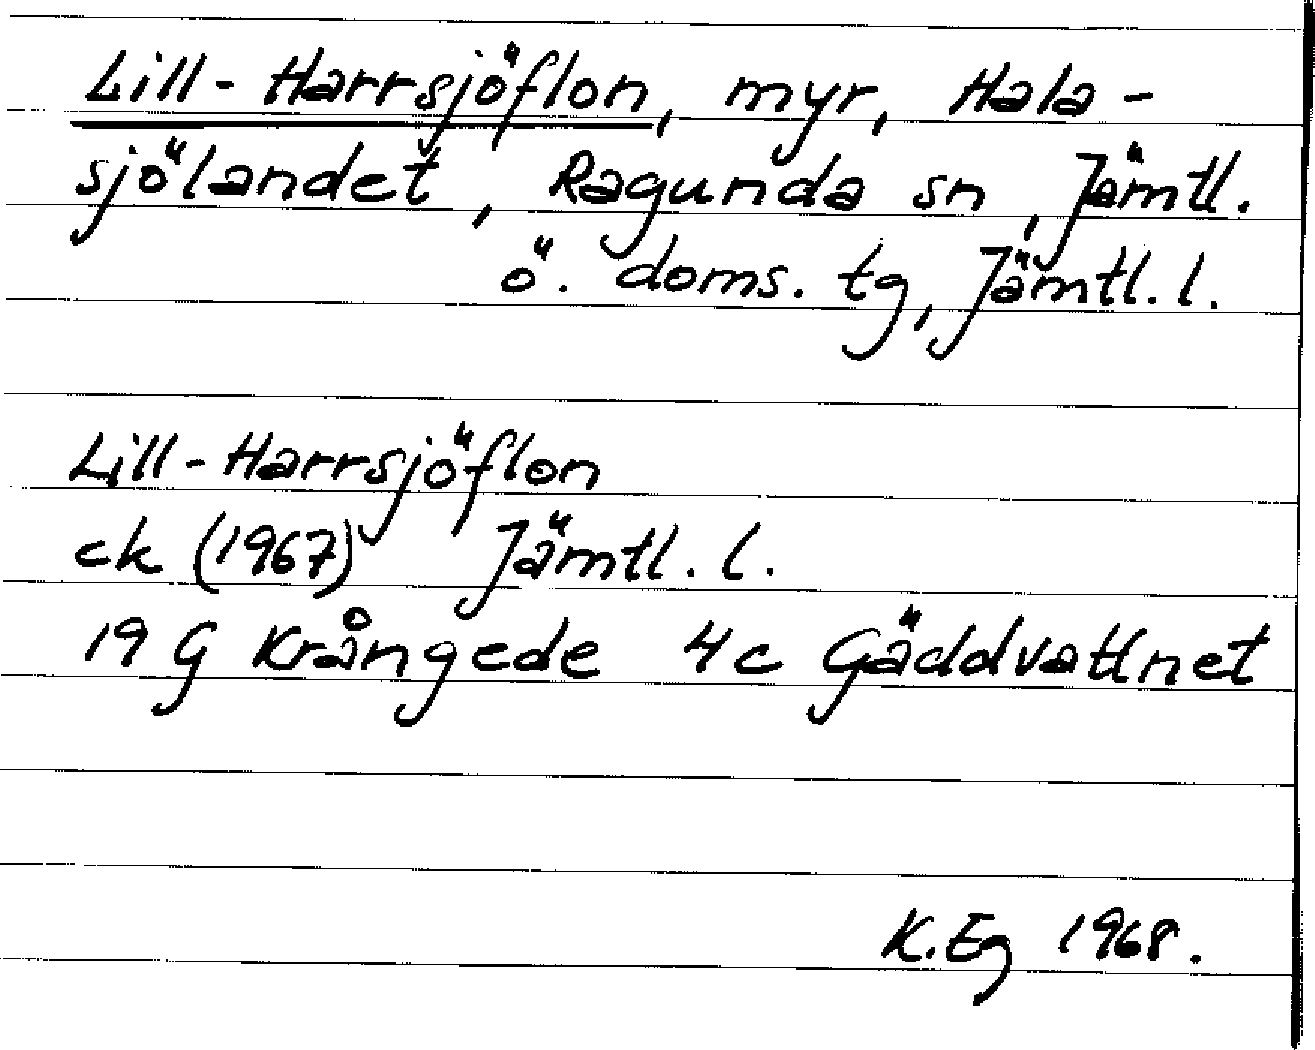 Lill-Harrsjöflon, myr, Hala-
sjölandet, Ragunda sn, Jämtl.
ö. doms. tg, Jämtl. l.
Lill-Harrsjöflon
ck (1967) Jämtl. l.
19 G Krångede 4c Gäddvattnet
K.Eg 1968.